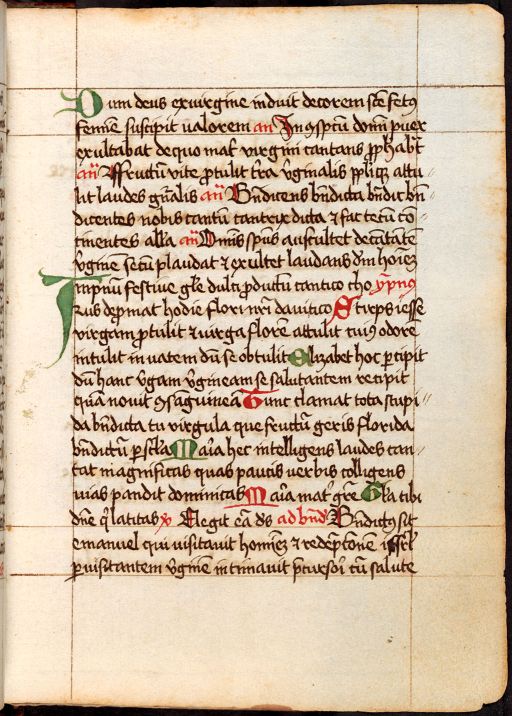 Dum deus ex virgine induit decorem sce fetꝰ
femine suscipit ualorem an̄ In ꝯspcu domi puer
exultabat de quo mat̉ virgini cantans ꝓphabit
an̄ Ffructū vite ꝓtulit tr̄a v̉ginalis
lit laudes gn̉alis an̄ Bn̄dicens bn̄dicta bn̄dic bn̄
dicentes nobis tantū dicta ⁊ fac tecū cō-
tinentes alla an̄ Omīs spūs auscultet decātātē
v̉ginē secū plaudat ⁊ exultet laudans dm̄ hoīem
Impnū festiue gl̄e dulci ꝓductū cantico cho ypnus
rus deꝓmat hodie flori nr̄i dauitico Stirps iesse
virgam ꝓtulit ⁊ virga florē attulit cuiꝰ odorē
intulit in uatem dū se obtulit Elizabet hoc ꝑcipit
dū hanc v̉gam v̉gineam se salutantem recipit
quā nouit ꝯsāguineā Tunc clamat tota stupi-
da bn̄dicta tu virgula que fructū geris florida
bn̄dictū ꝑ scl̄a Maīa hec intelligens laudes can-
tat magnificas quas paucis uerbis colligens
uias pandit dominicas Maīa mat̉ gr̄e Gl̄a tibi
dn̄e q̇ latitas Elegit eā ds̄ ad bn̄d̉ Bn̄dictꝰ sit
emanuel qui visitauit hominē ⁊ redēptionē isrl̄
ꝑ uisitantem v̉ginē intimauit p̄cursori cū salute